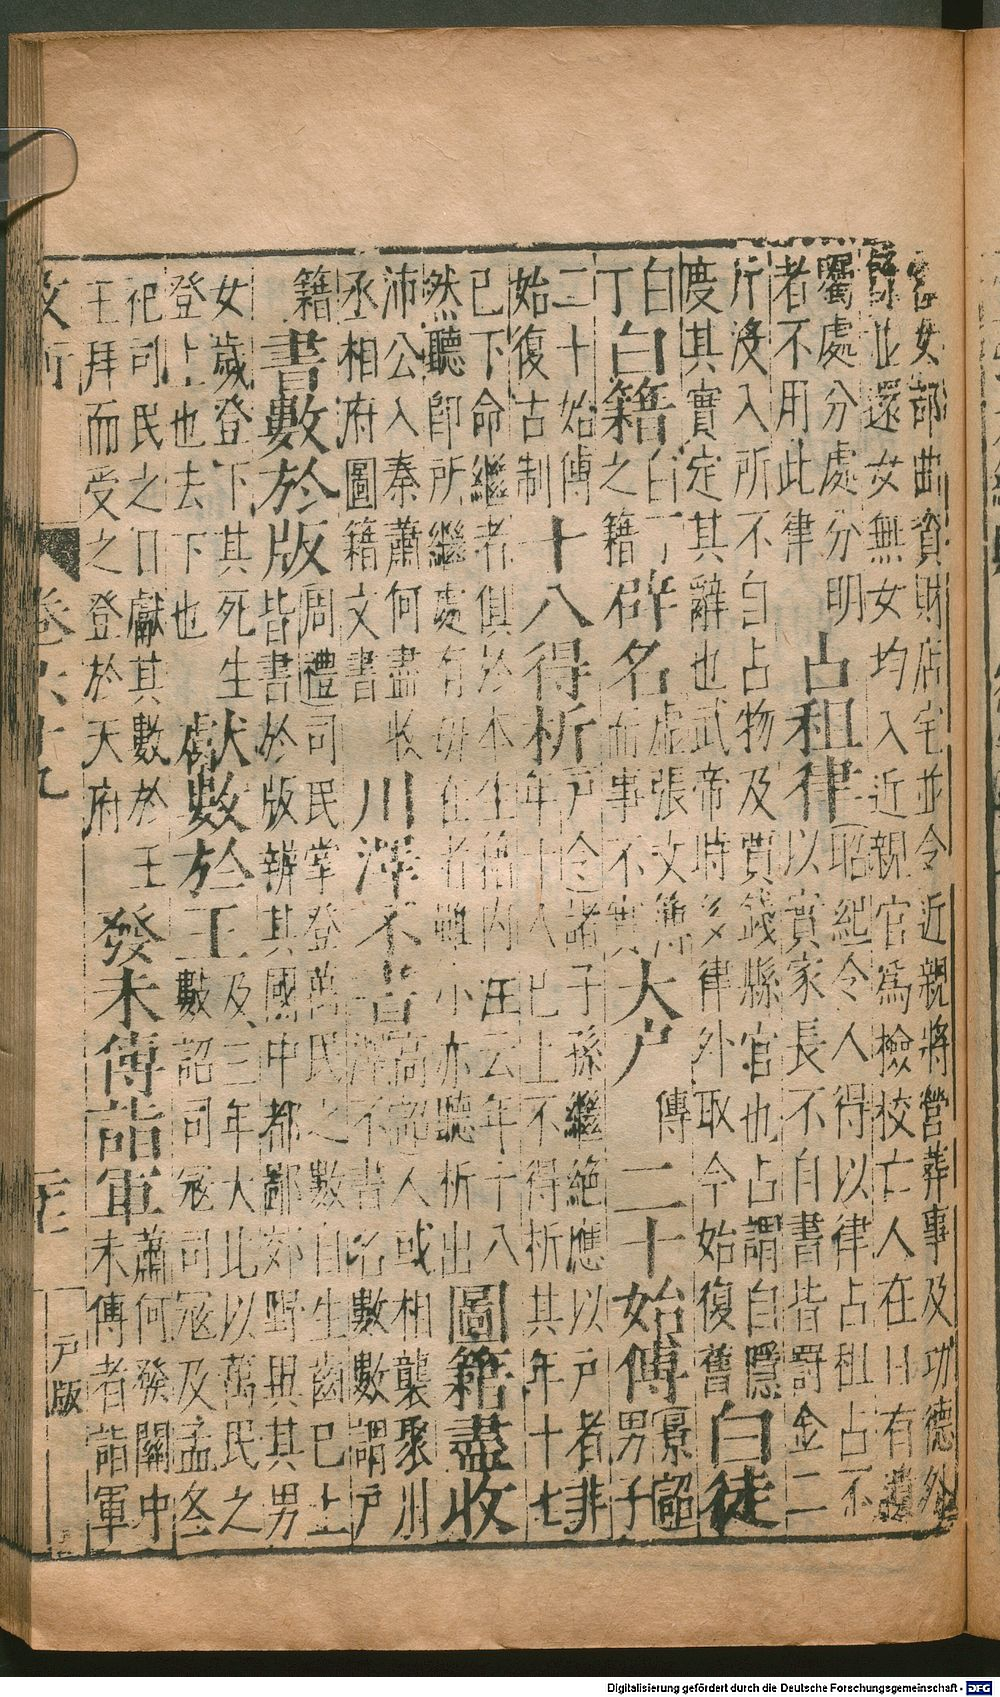 客女部曲資財店宅並令近親將營葬事及功德外
餘並還女無女均入近親官爲檢校亡人在日有遺
囑處分處分明
占租律
昭紀令人得以律占租占不
者不用此律
以實家長不自書皆罰金二
斤沒入所不自占物及賈錢縣官也占謂自隱
度其實定其辭也武帝時多律外取今始復舊
白徒
白白丁
丁
白籍
之籍
辟名
虛張文簿
而事不實
大户
傅
二十始傅
景詔男子
二十始傅
始復古制
十八得析
户令諸子孫繼絶應以户者非
年十八已上不得析其年十七
已下命繼者俱於本生籍内注云年十八
然聽即所繼處有母在者雖小亦聽析出
圖籍盡收
沛公入秦蕭何盡收
丞相府圖籍文書
川澤不書
高詔人或相襲聚川
澤不書名數數謂户
籍
書數於版
周禮司民掌登萬民之數自生齒已上
皆書於版辨其國中都鄙郊野異其男
女歲登下其死生
登上也去下也
獻數於王
及三年大比以萬民之
數詔司寇司寇及孟冬
祀司民之日獻其數於王
王拜而受之登於天府
發未傅詣軍
蕭何發關中
未傅者詣軍
户版
Digitalisierung gefördert durch die Deutsche Forschungsgemeinschaft - DFG